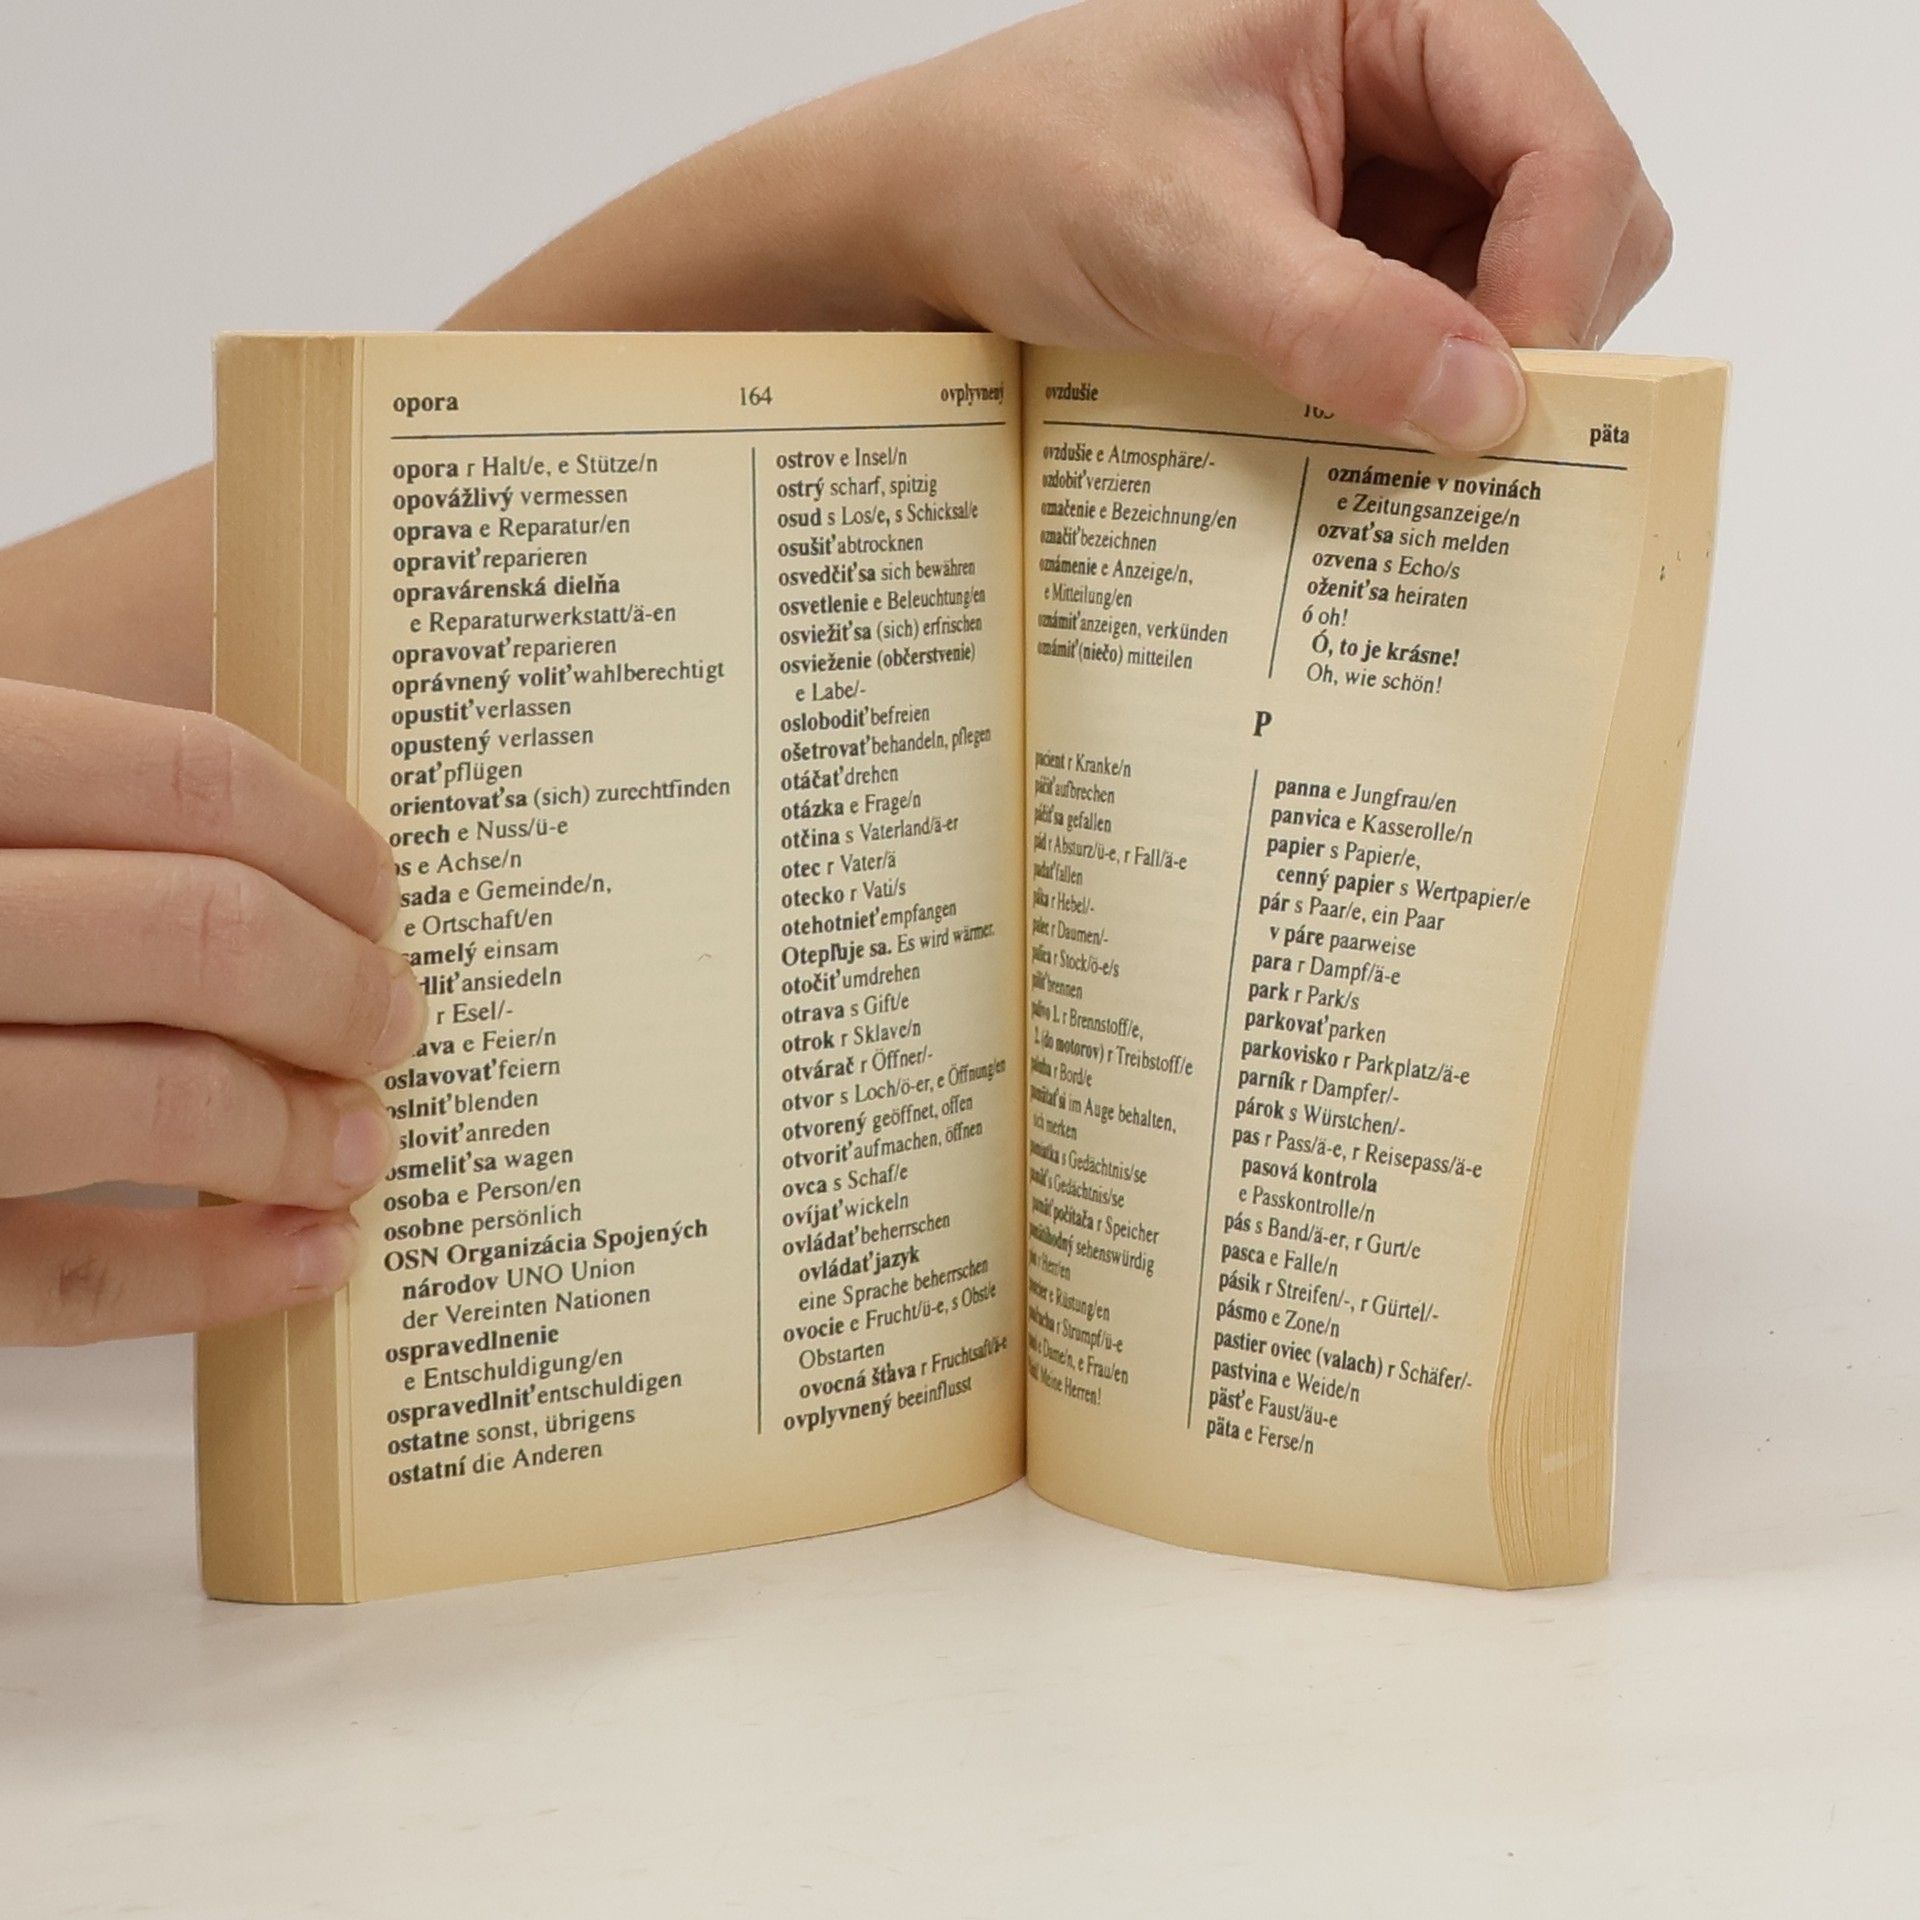 opora 164 ovplyvnený
opora r Halt/e, e Stütze/n
opovážlivý vermessen
oprava e Reparatur/en
opraviť reparieren
opravárenská dielňa
e Reparaturwerkstatt/ä-en
opravovať reparieren
oprávnený voliť wahlberechtigt
opustiť verlassen
opustený verlassen
orať pflügen
orientovať sa (sich) zurechtfinden
orech e Nuss/ü-e
e Achse/n
e Gemeinde/n,
e Ortschaft/en
einsam
ansiedeln
r Esel/-
e Feier/n
oslavovať feiern
blenden
anreden
osmeliť sa wagen
osoba e Person/en
osobne persönlich
OSN Organizácia Spojených
národov UNO Union
der Vereinten Nationen
ospravedlnenie
e Entschuldigung/en
ospravedlniť entschuldigen
ostatne sonst, übrigens
ostatní die Anderen
ostrov e Insel/n
ostrý scharf, spitzig
osud s Los/e, s Schicksal/e
osušiť abtrocknen
osvedčiť sa sich bewähren
osvetlenie e Beleuchtung/en
osviežiť sa (sich) erfrischen
osvieženie (občerstvenie)
e Labe/-
oslobodiť befreien
ošetrovať behandeln, pflegen
otáčať drehen
otázka e Frage/n
otčina s Vaterland/ä-er
otec r Vater/ä
otecko r Vati/s
otehotnieť empfangen
Otepľuje sa. Es wird wärmer.
otočiť umdrehen
otrava s Gift/e
otrok r Sklave/n
otvárač r Öffner/-
otvor s Loch/ö-er, e Öffnung/en
otvorený geöffnet, offen
otvoriť aufmachen, öffnen
ovca s Schaf/e
ovíjať wickeln
ovládať beherrschen
ovládať jazyk
eine Sprache beherrschen
ovocie e Frucht/ü-e, s Obst/e
Obstarten
ovocná šťava r Fruchtsaft/ä-e
ovplyvnený beeinflusst
ovzdušie päta
ovzdušie e Atmosphäre/-
ozdobiť verzieren
označenie e Bezeichnung/en
označiť bezeichnen
oznámenie e Anzeige/n,
e Mitteilung/en
oznámiť anzeigen, verkünden
oznámiť (niečo) mitteilen
oznámenie v novinách
e Zeitungsanzeige/n
ozvať sa sich melden
ozvena s Echo/s
oženiť sa heiraten
ó oh!
Ó, to je krásne!
Oh, wie schön!
P
pacient r Kranke/n
páčiť aufbrechen
páčiť sa gefallen
pád r Absturz/ü-e, r Fall/ä-e
padať fallen
páka r Hebel/-
palec r Daumen/-
palica r Stock/ö-e/s
páliť brennen
palivo 1. r Brennstoff/e,
2. (do motorov) r Treibstoff/e
paluba r Bord/e
pamätať si im Auge behalten,
sich merken
pamiatka s Gedächtnis/se
pamäť s Gedächtnis/se
pamäť počítača r Speicher
pamätihodný sehenswürdig
pán r Herr/en
pancier e Rüstung/en
pančucha r Strumpf/ü-e
pani e Dame/n, e Frau/en
Meine Herren!
panna e Jungfrau/en
panvica e Kasserolle/n
papier s Papier/e,
cenný papier s Wertpapier/e
pár s Paar/e, ein Paar
v páre paarweise
para r Dampf/ä-e
park r Park/s
parkovať parken
parkovisko r Parkplatz/ä-e
parník r Dampfer/-
párok s Würstchen/-
pas r Pass/ä-e, r Reisepass/ä-e
pasová kontrola
e Passkontrolle/n
pás s Band/ä-er, r Gurt/e
pasca e Falle/n
pásik r Streifen/-, r Gürtel/-
pásmo e Zone/n
pastier oviec (valach) r Schäfer/-
pastvina e Weide/n
päsť e Faust/äu-e
päta e Ferse/n